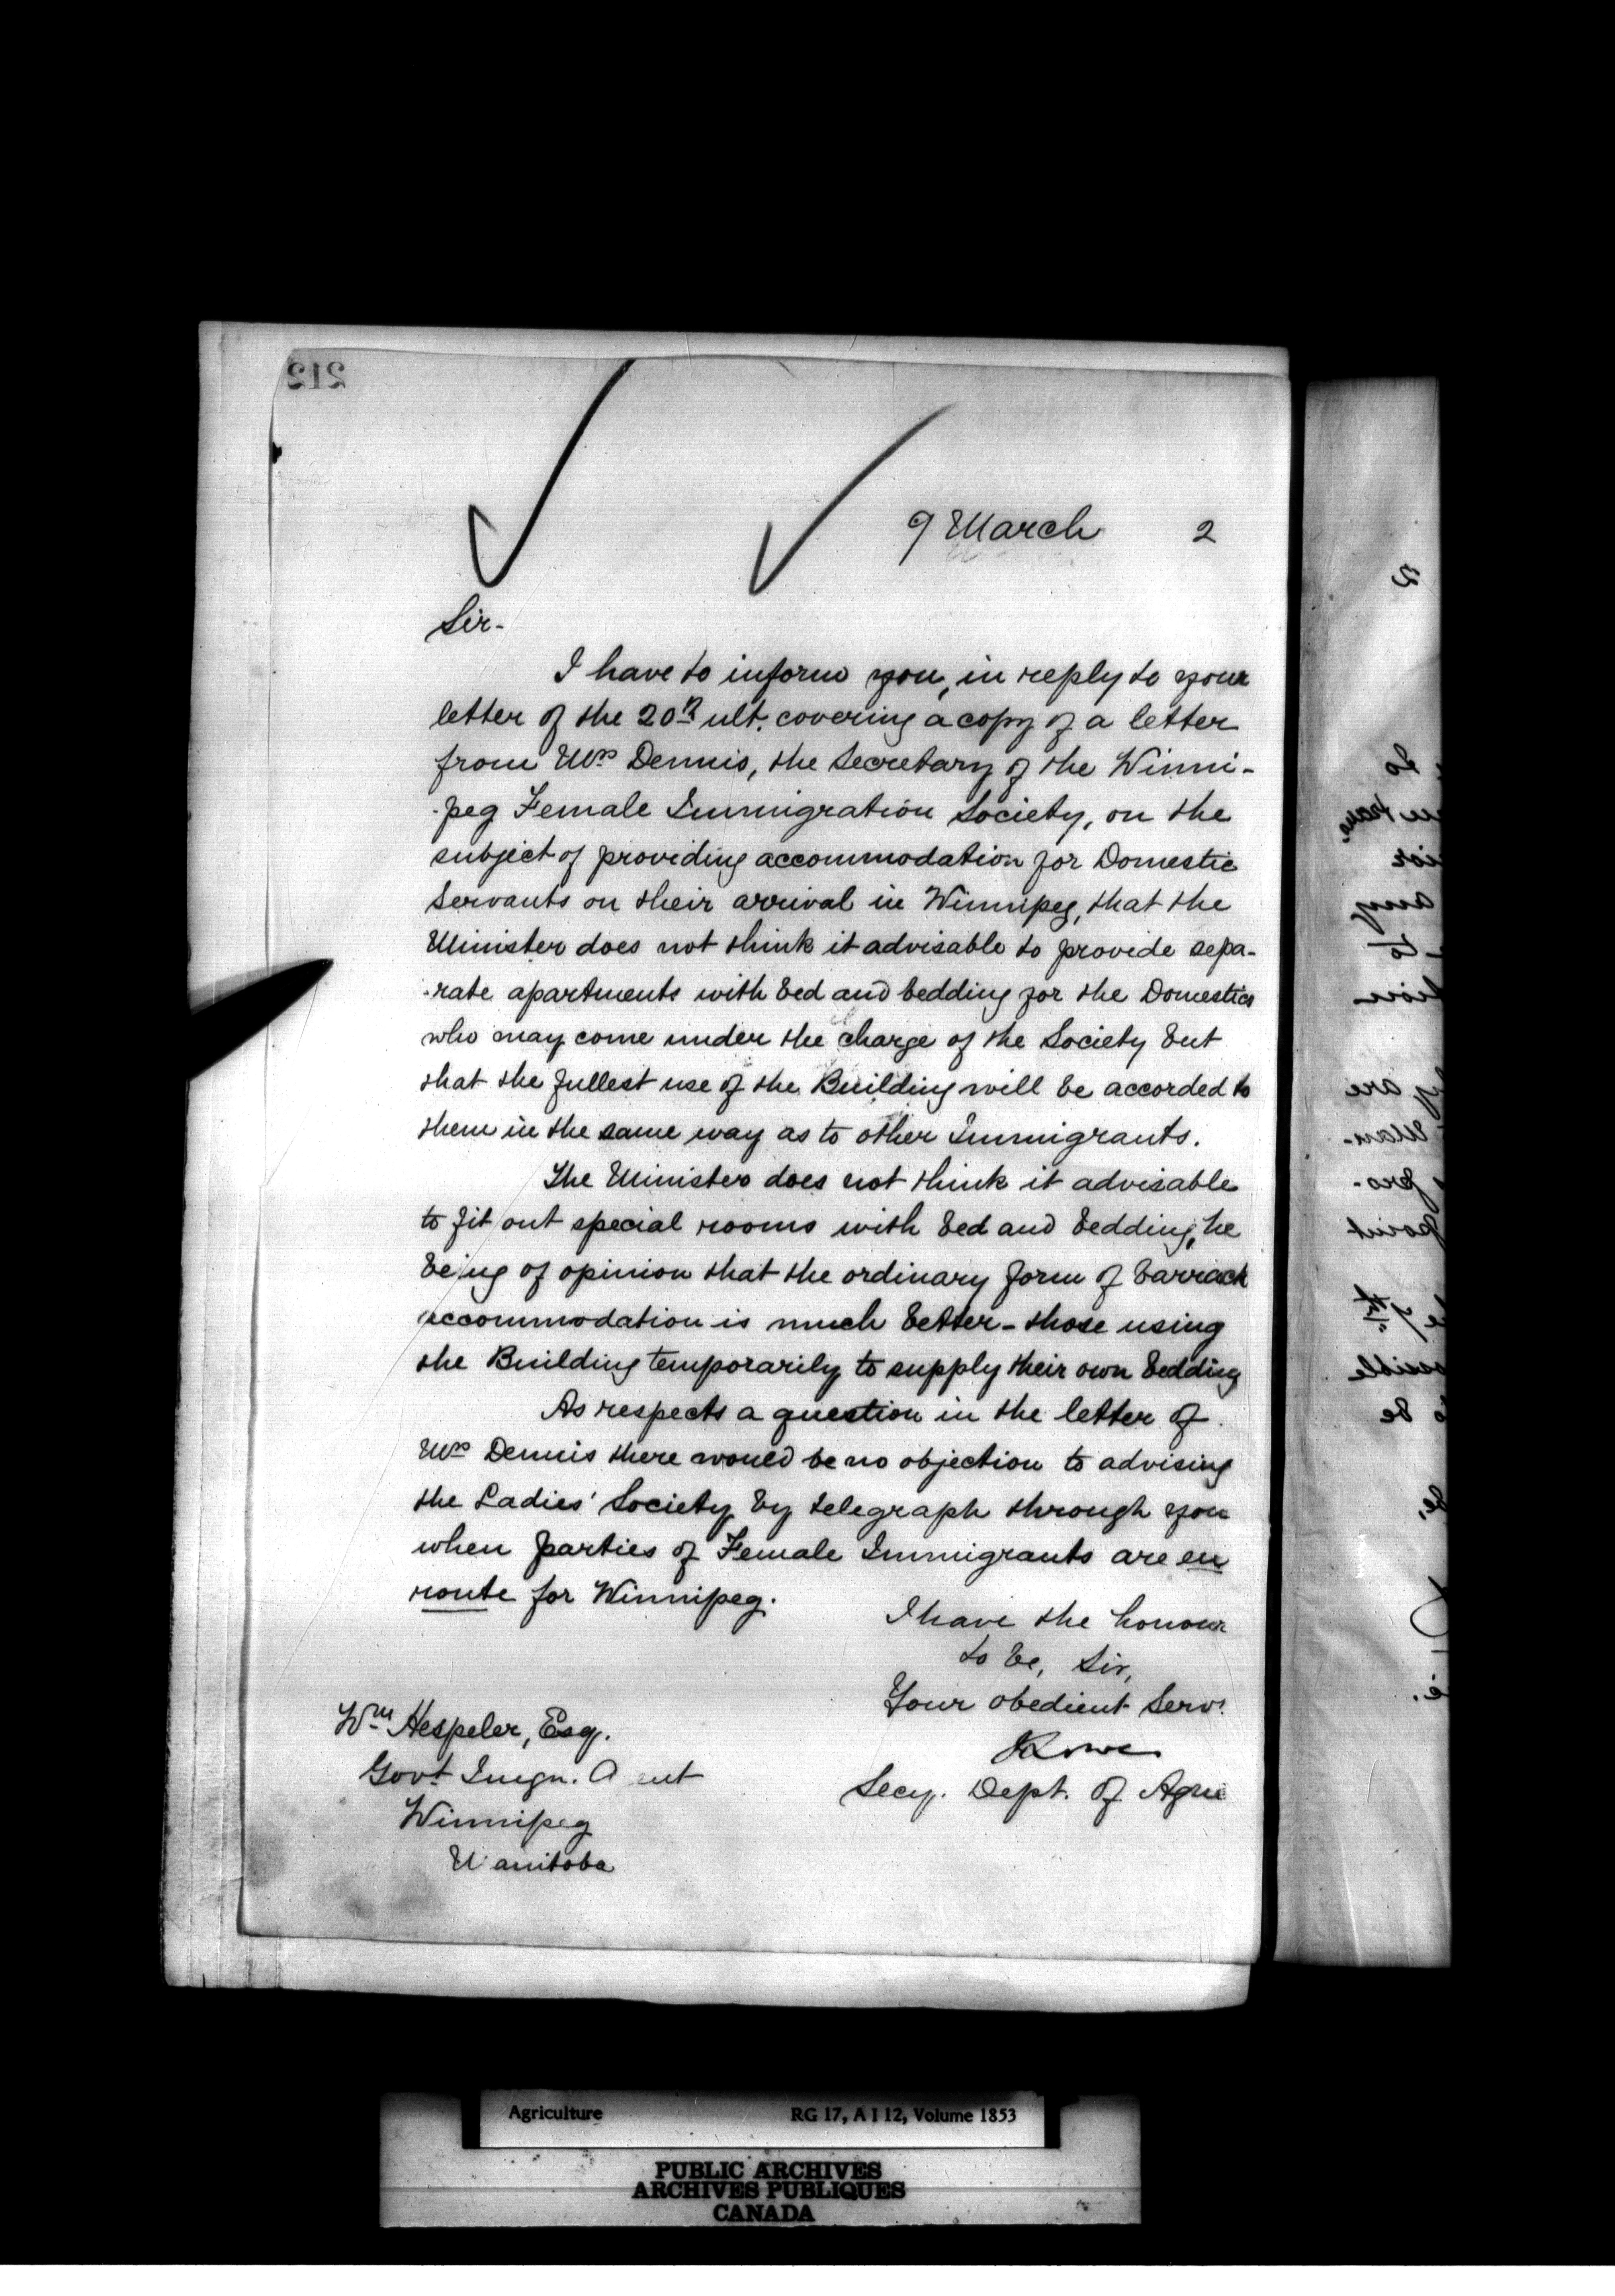 212
9 March 2
Sir-
I have to inform you, in reply to your
letter of the 20th ult. covering a copy of a letter
from Mrs Dennis, the Secretary of the Winni-
-peg Female Immigration Society, on the
subject of providing accommodation for Domestic
Servants on their arrival in Winnipeg, that the
Minister does not think it advisable to provide sepa-
-rate apartments with bed and bedding for the Domestics
who may come under the charge of the Society but
that the fullest use of the Building will be accorded to
them in the same way as to other Immigrants.
The Minister does not think it advisable
to fit out special rooms with bed and bedding, he
being of opinion that the ordinary form of barrack
accommodation is much better - those using
the Building temporarily to supply their own bedding
As respects a question in the letter of
Mrs Dennis there would be no objection to advising
the Ladies' Society by telegraph through you
when parties of Female Immigrants are en
route for Winnipeg.
I have the honour
to be, Sir,
Your obedient Servt
JLowe
Secy. Dept. of Agric
Wm Hespeler, Esq.
Govt Imgn. Agent
Winnipeg
Manitoba
Agriculture RG 17, A I 12, Volume 1853
PUBLIC ARCHIVES
ARCHIVES PUBLIQUES
CANADA